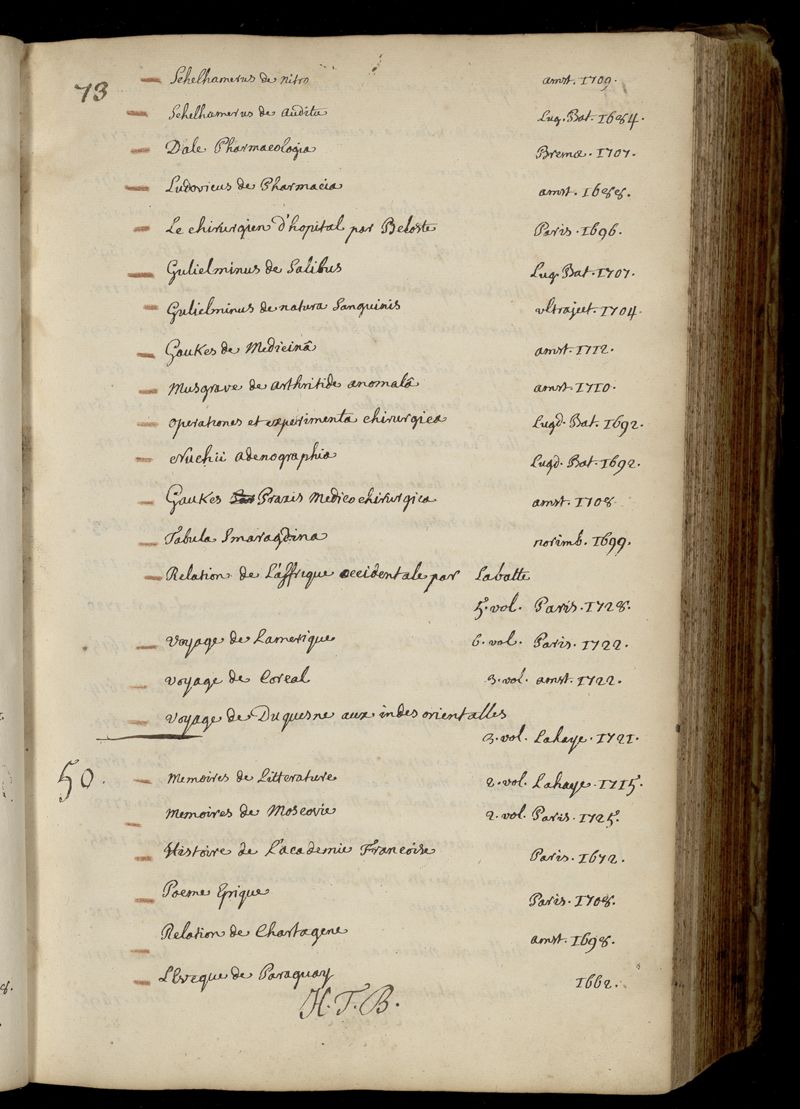 73
Schelhamerus de nitro amst. 1709.
Schelhamerus de auditu Lug. Bat. 1684.
Dale Pharmacologia Bremæ. 1707.
Ludovicus de Pharmacia amst. 1688.
Le chirurgien d'hopital par Beloste Paris. 1696.
Gulielminus de Salibus Lug. Bat. 1707.
Gulielminus de natura Sanguinis ultraject. 1704.
Gaukes de Medicinâ amst. 1712.
Musgrave de arthritide anomalâ amst. 1710.
operationes et experimenta chirurgica Lugd. Bat. 1692.
Nuchii adenographia Lugd. Bat. 1692.
Gaukes Praxis Medico chirurgica amst. 1708
Tabula Smaragdina norimb. 1699.
Relation de L'affrique occidentale par Labatte
5. vol. Paris. 1728.
Voyage de Lamerique 6. vol. Paris. 1722.
Voyage de Coreal 3. vol. amst. 1722.
Voyage de Duquesne aux indes orientalles
3. vol. Lahaye. 1721.
50.
Memoires de Litterature 2. vol. Lahaye. 1715.
Memoires de Moscovie 2. vol. Paris. 1725.
Histoire de L'academie Francoise Paris. 1672.
Poeme Epique Paris. 1708.
Relation de Chartagene amst. 1698.
L'Eveque de Paraguay 1662.
H. T. B.
8.